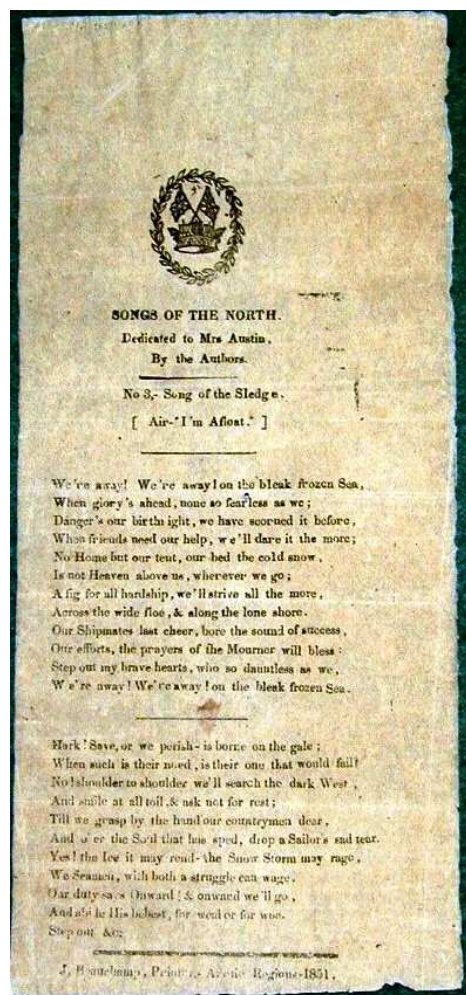 SONGS OF THE NORTH.
Dedicated to Mrs Austin,
By the Authors.
No 3,- Song of the Sledge.
[ Air-"I'm Afloat." ]
We're away! We're away! on the bleak frozen Sea,
When glory's ahead, none so fearless as we;
Danger's our birth ight, we have scorned it before,
When friends need our help, we'll dare it the more;
No Home but our tent, our bed the cold snow,
Is not Heaven above us, wherever we go;
A fig for all hardship, we'll strive all the more,
Across the wide floe, & along the lone shore.
Our Shipmates last cheer, bore the sound of success,
Our efforts, the prayers of the Mourner will bless:
Step out my brave hearts, who so dauntless as we,
We're away! We're away! on the bleak frozen Sea.
Hark! Save, or we perish- is borne on the gale;
When such is their need, is their one that would fail?
No! shoulder to shoulder we'll search the dark West,
And smile at all toil, & ask not for rest;
Till we grasp by the hand our countrymen dear,
And o'er the Soul that has sped, drop a Sailor's sad tear.
Yes! the Ice it may rend- the Snow Storm may rage,
We Seamen, with both a struggle can wage.
Our duty says Onward! & onward we'll go,
And abide His behest, for weal or for woe.
Step out &c;
J. Beauchamp, Printer,- Arctic Regions-1851.